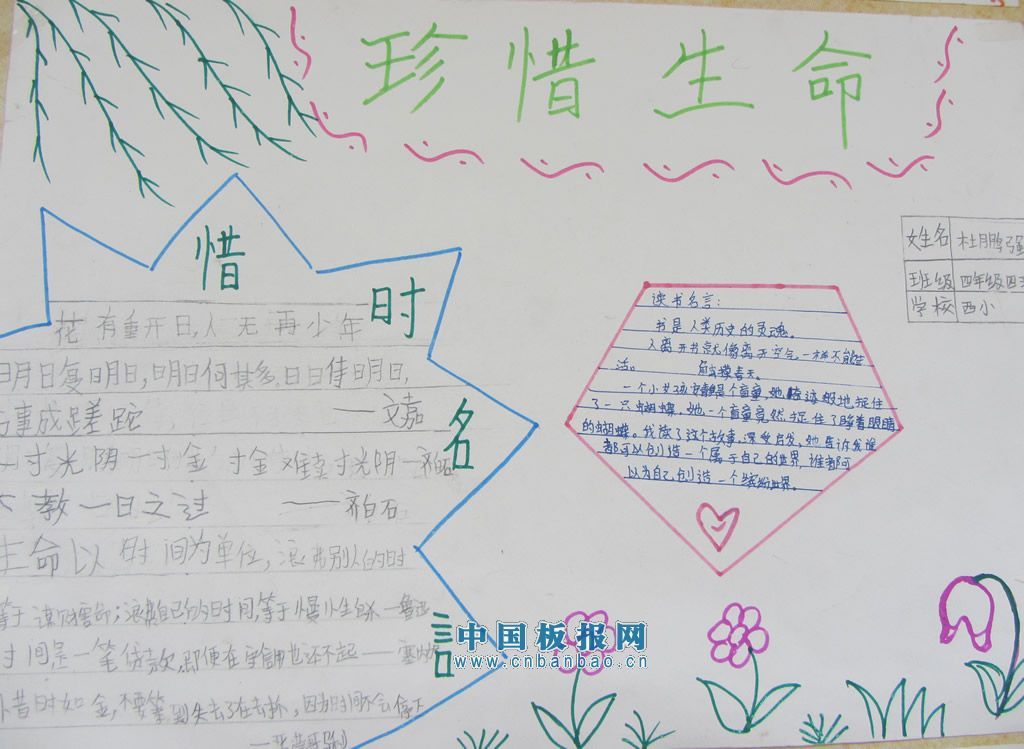 珍惜生命
惜时名言
花有重开日,人无再少年
明日复明日,明日何其多,日日待明日,
事成蹉跎
——文嘉
寸光阴一寸金 寸金难买寸光阴
教一日之过 ——齐白石
生命以时间为单位,浪费别人的时
等于谋财害命;浪费自己的时间,等于慢性自杀——鲁迅
时间是一笔贷款,即使在守信用也还不起——
惜时如金,不要等到失去了在去抓,因为时间不会停下
姓名 杜鹏强
班级 四年级四
学校 西小
读书名言:
书是人类历史的灵魂。
人离开书就像离开空气一样不能生
活。 触摸春天。
一个小女孩安静是个盲童,她悄然般地捉住
了一只蝴蝶。她一个盲童竟然捉住了睁着眼睛
的蝴蝶。我读了这个故事,深受启发。她告诉我谁
都可以创造一个属于自己的世界,谁都可
以为自己创造一个缤纷世界。
中国板报网
www.cnbanbao.cn